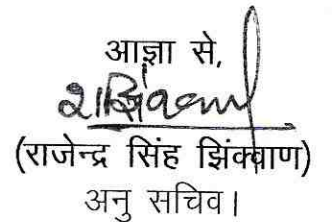 आज्ञा से,
(राजेन्द्र सिंह झिंक्वाण)
अनु सचिव।